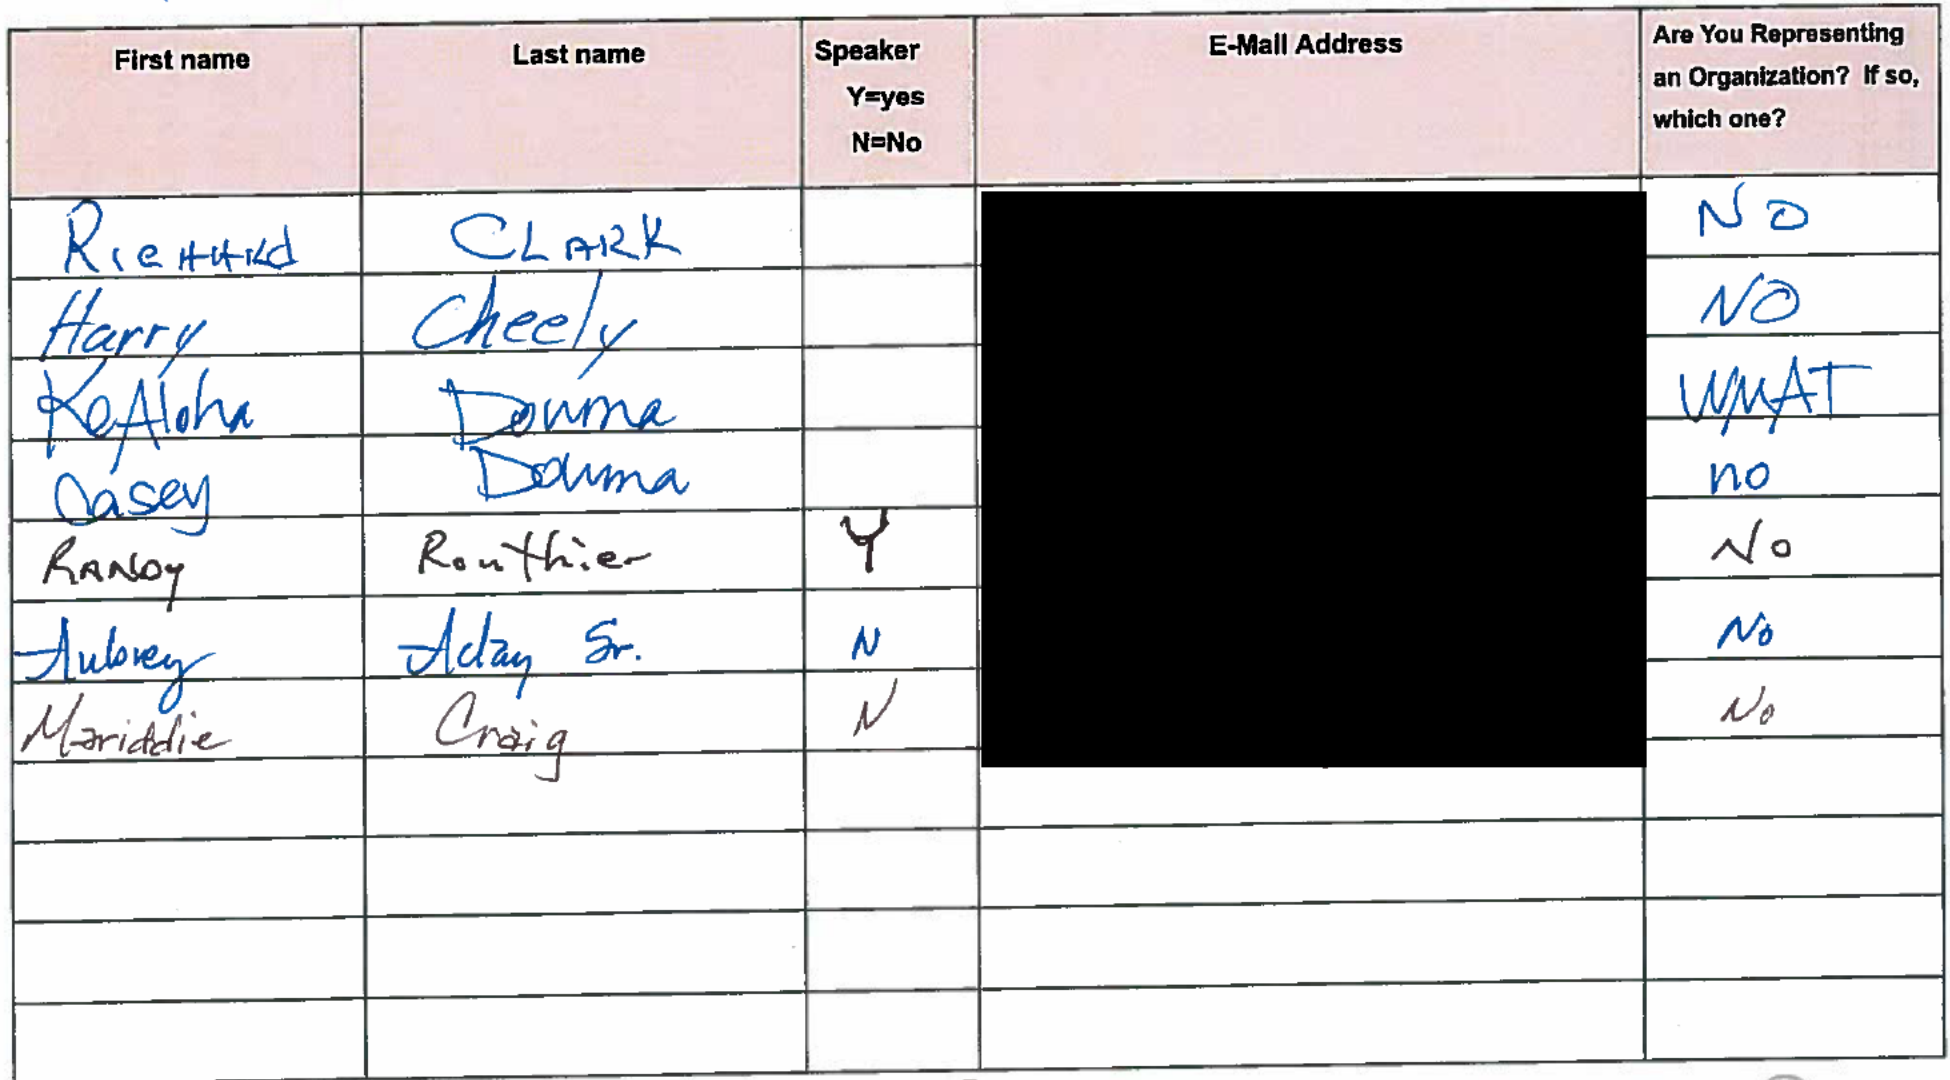 First name Last name Speaker Y=yes N=No E-Mail Address Are You Representing an Organization? If so, which one?
Richard CLARK NO
Harry Cheely NO
KeAloha Douma WMAT
Casey Douma no
RANDY Routhier Y No
Aubrey Aday Sr. N No
Mariddie Craig N No